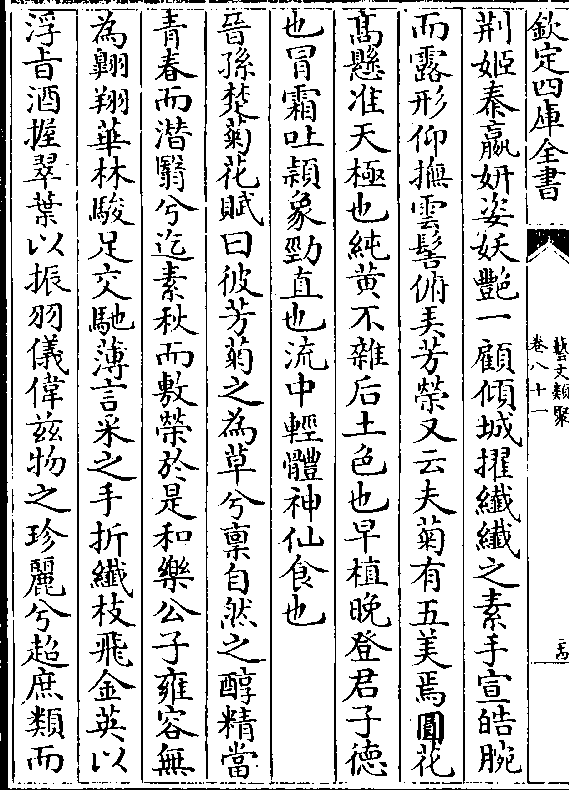 欽定四庫全書
藝文類聚
卷八十一
荆姬秦嬴妍姿妖艷一顧傾城擢纖纖之素手宣皓腕
而露形仰撫雲髻俯弄芳榮又云夫菊有五美焉圓花
髙懸准天極也純黄不雜后土色也早植晚登君子徳
也冒霜吐穎象勁直也流中輕體神仙食也
晉孫楚菊花賦曰彼芳菊之為草兮禀自然之醇精當
青春而潜翳兮迄素秋而敷榮於是和樂公子雍容無
為翺翔華林駿足交馳薄言采之手折纖枝飛金英以
浮旨酒握翠葉以振羽儀偉兹物之珍麗兮超庶類而